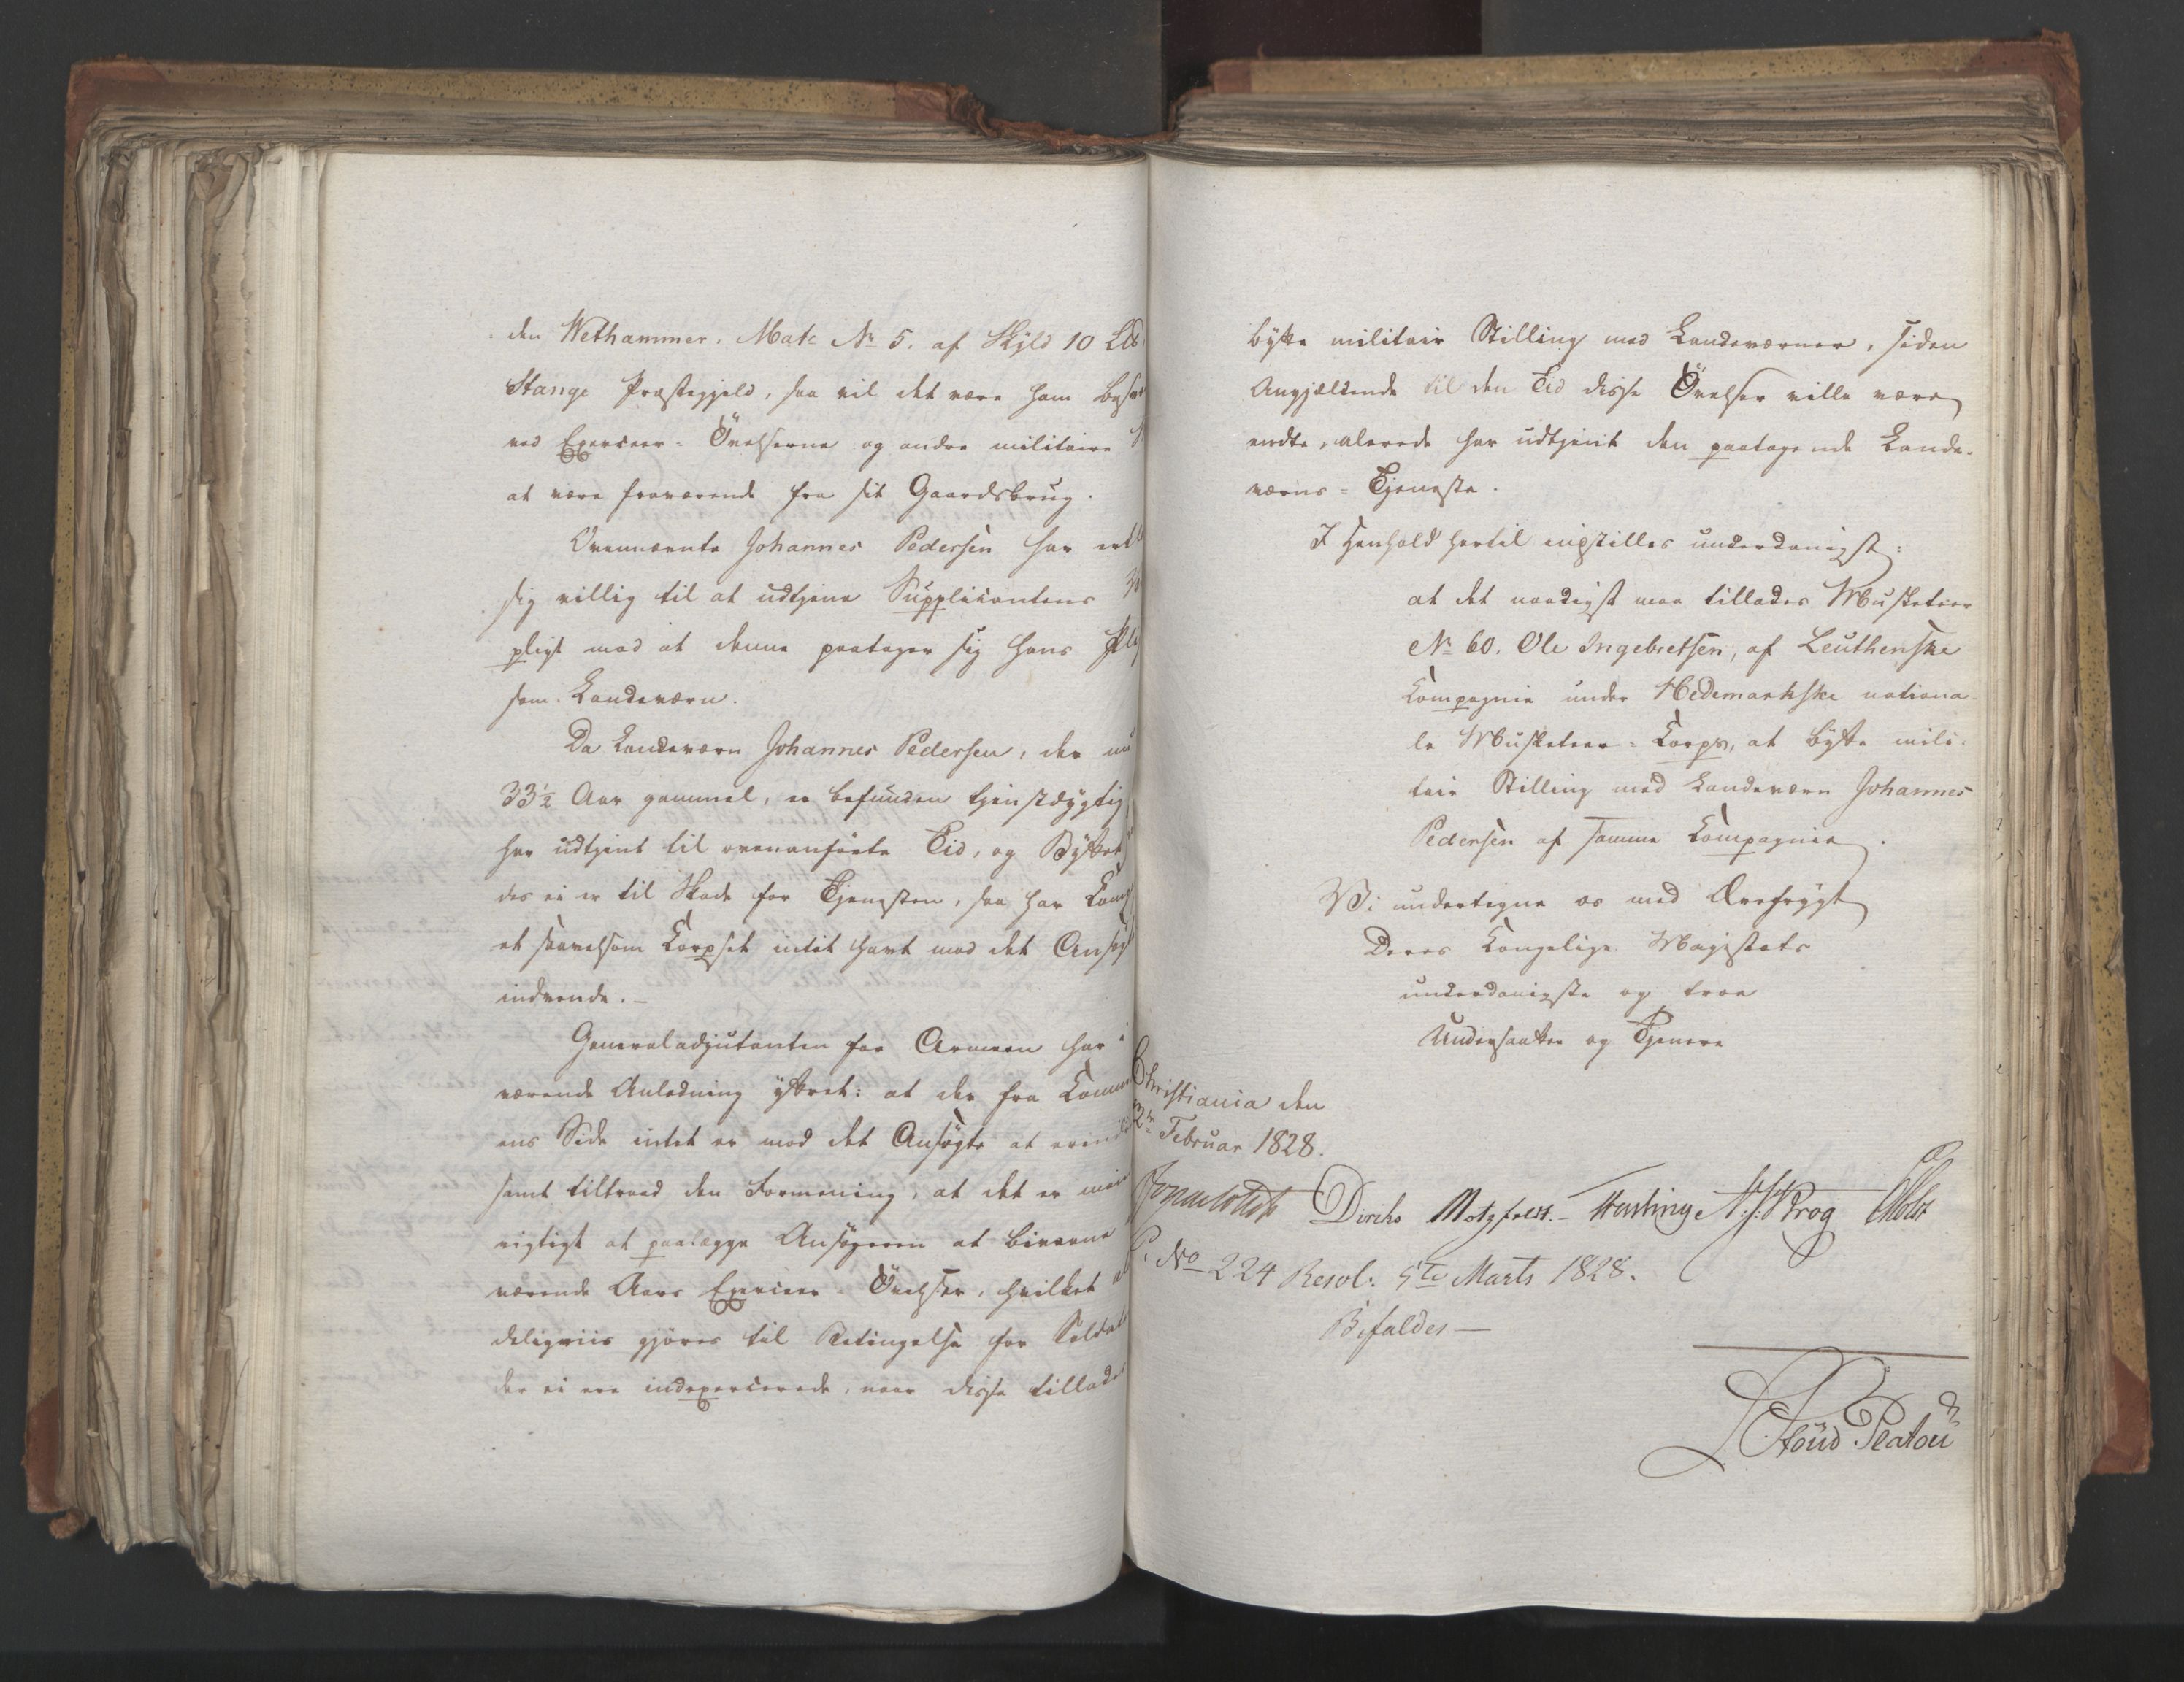 den Wethammer, Mat: No 5. af Skyld 10 L℔
Stange Præstegjeld, saa vil det være ham besv
ved Exerceer-Övelserne og andre militaire
at være fraværende fra sit Gaardsbrug.
Ovennævnte Johannes Pedersen har erkl
sig villig til at udtjene Supplicantens
pligt mod at denne paatager sig hans Pli
som Landeværn.
Da Landeværn Johannes Pedersen, der nu
33½ Aar gammel, er befunden tjenstdygtig
har udtjent til ovenanförte Tid, og Byttet
des ei er til Skade for Tjenesten, saa har Comp
et saavelsom Corpset intet havt mod det Ansög
indvende.–
Generaladjutanten for Armeen har i
værende Anledning yttret: at der fra Comm
ens Side intet er mod det Ansögte at erindr
samt tiltraad den Formening, at det er
rigtigt at paalægge Ansögeren at bivaane
værende Aars Exerceer-Övelser, hvilket
deligviis gjöres til Betingelse for Soldat
der ei ere indexercerede, naar disse tillades
bytte militair Stilling med Landeværner, siden
Angjældende til den Tid disse Övelser ville være
endte, allerede har udtjent den paatagende Lande-
værns-Tjeneste.
I Henhold hertil indstilles underdanigst:
at det naadigst maa tillades Musketeer
No 60. Ole Ingebretsen, af Leuthenske
Compagnie under Hedemarkske nationa-
le Musketeer-Corps, at bytte mili-
tair Stilling med Landeværn Johannes
Pedersen af samme Compagnie.
Vi undertegne os med Ærefrygt
Deres Kongelige Majestæts
underdanigste og troe
Undersaatter og Tjenere
Christiania den
Februar 1828.
Jonas Collett Diriks Motzfeldt.– N. J. Krog Holst
No 224 Resol: 5te Marts 1828.
Bifaldes –
Stoud Platou